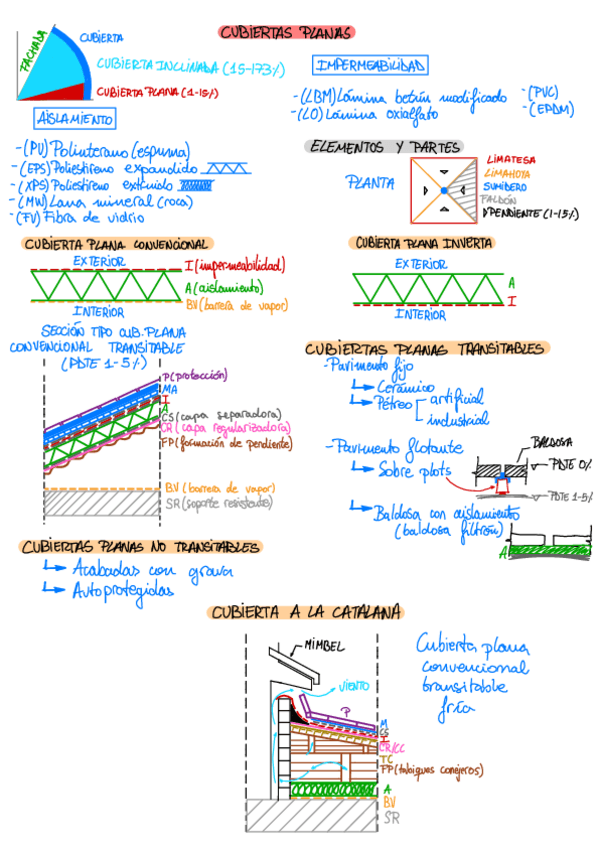 CUBIERTAS PLANAS
FACHADA
CUBIERTA
CUBIERTA INCLINADA (15-173%)
CUBIERTA PLANA (1-15%)
IMPERMEABILIDAD
-(LBM) Lámina betún modificado
-(LO) Lámina oxiasfato
-(PVC)
-(EPDM)
AISLAMIENTO
-(PU) Poliuterano (espuma)
-(EPS) Poliestireno expandido
-(XPS) Poliestireno extruido
-(MW) Lana mineral (roca)
-(FV) Fibra de vidrio
ELEMENTOS Y PARTES
PLANTA
LIMATESA
LIMAHOYA
SUMIDERO
FALDÓN
PENDIENTE (1-15%)
CUBIERTA PLANA CONVENCIONAL
EXTERIOR
I (impermeabilidad)
A (aislamiento)
BV (barrera de vapor)
INTERIOR
CUBIERTA PLANA INVERTA
EXTERIOR
A
I
INTERIOR
SECCIÓN TIPO CUB. PLANA
CONVENCIONAL TRANSITABLE
(PDTE 1-5%)
P (protección)
MA
I
A
CS (capa separadora)
CR (capa regularizadora)
FP (formación de pendiente)
BV (barrera de vapor)
SR (soporte resistente)
CUBIERTAS PLANAS TRANSITABLES
-Pavimento fijo
Cerámico
Pétreo
artificial
industrial
-Pavimento flotante
Sobre plots
BALDOSA
PDTE 0%
PDTE 1-5%
Baldosa con aislamiento
(baldosa filtrón)
A
CUBIERTAS PLANAS NO TRANSITABLES
Acabadas con grava
Autoprotegidas
CUBIERTA A LA CATALANA
MIMBEL
VIENTO
P
M
CS
I
CR/CC
TC
FP (tabiques conejeros)
A
BV
SR
Cubierta plana
convencional
transitable
fría